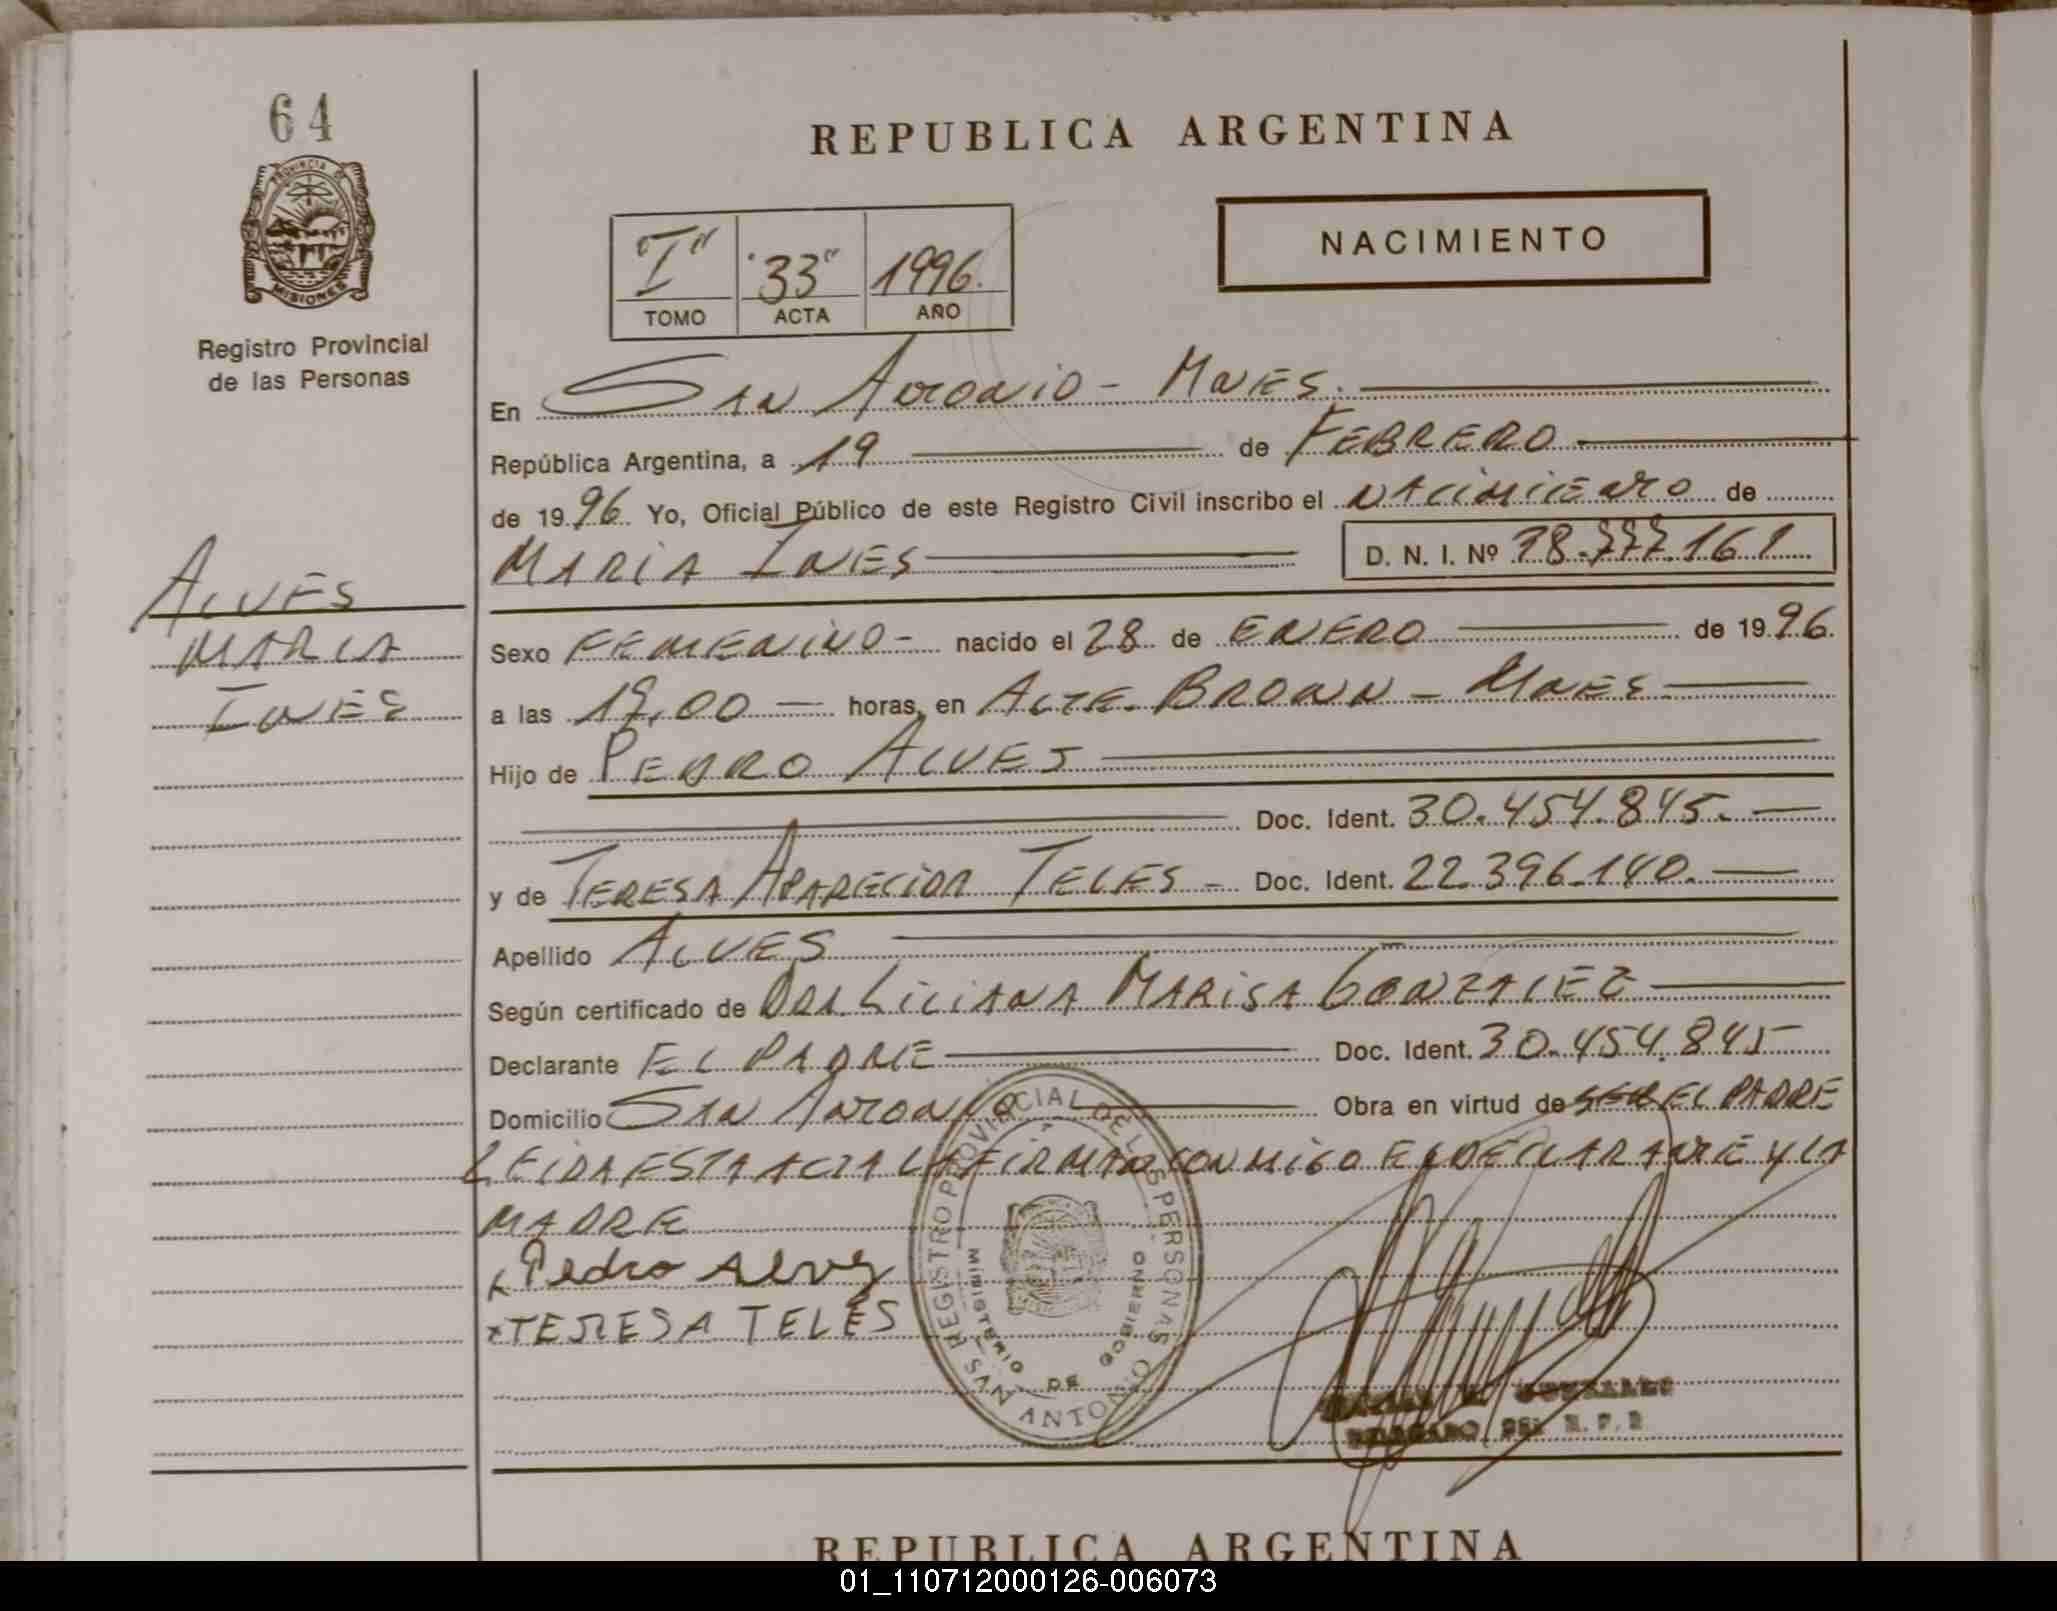 64
PROVINCIA DE
MISIONES
Registro Provincial
de las Personas
REPUBLICA ARGENTINA
NACIMIENTO
"I" "33" 1996.
TOMO ACTA AÑO
En San Antonio - Mnes.
República Argentina, a 19 de FEBRERO
de 1996. Yo, Oficial Público de este Registro Civil inscribo el NACIMIENTO de
MARIA INES D. N. I. Nº 38.777.161
ALVES
MARIA
INES
Sexo FEMENINO - nacido el 28 de ENERO de 1996.
a las 19,00 horas, en ALTE. BROWN - MNES
Hijo de PEDRO ALVES
Doc. Ident. 30.454.845.
y de TERESA APARECIDA TELES - Doc. Ident. 22.396.140.
Apellido ALVES
Según certificado de DRA. LILIANA MARISA GONZALEZ
Declarante EL PADRE Doc. Ident. 30.454.845
Domicilio SAN ANTONIO Obra en virtud de SER EL PADRE
LEIDA ESTA ACTA LA FIRMAN CONMIGO EL DECLARANTE Y LA
MADRE
x Pedro Alves
x TERESA TELES
REGISTRO PROVINCIAL DE LAS PERSONAS
MINISTERIO DE GOBIERNO
SAN ANTONIO
GONZALEZ
DELEGADO DEL R. P. P.
REPUBLICA ARGENTINA
01_110712000126-006073